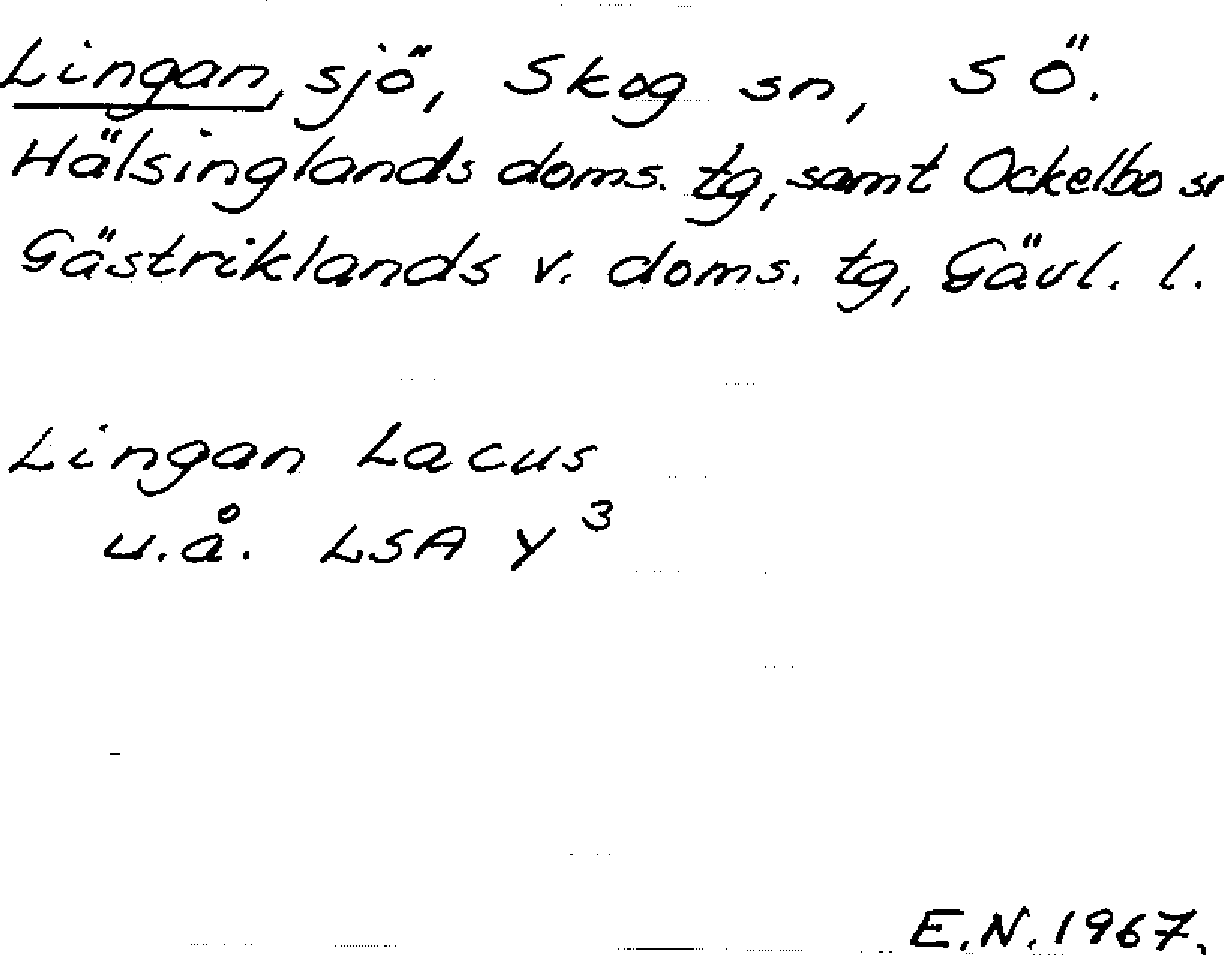 Lingan, sjö, Skog sn, SÖ.
Hälsinglands doms. tg, samt Ockelbo sn
Gästriklands v. doms. tg, Gävl. l.
Lingan Lacus
u.å. LSA Y³
E.N. 1967.